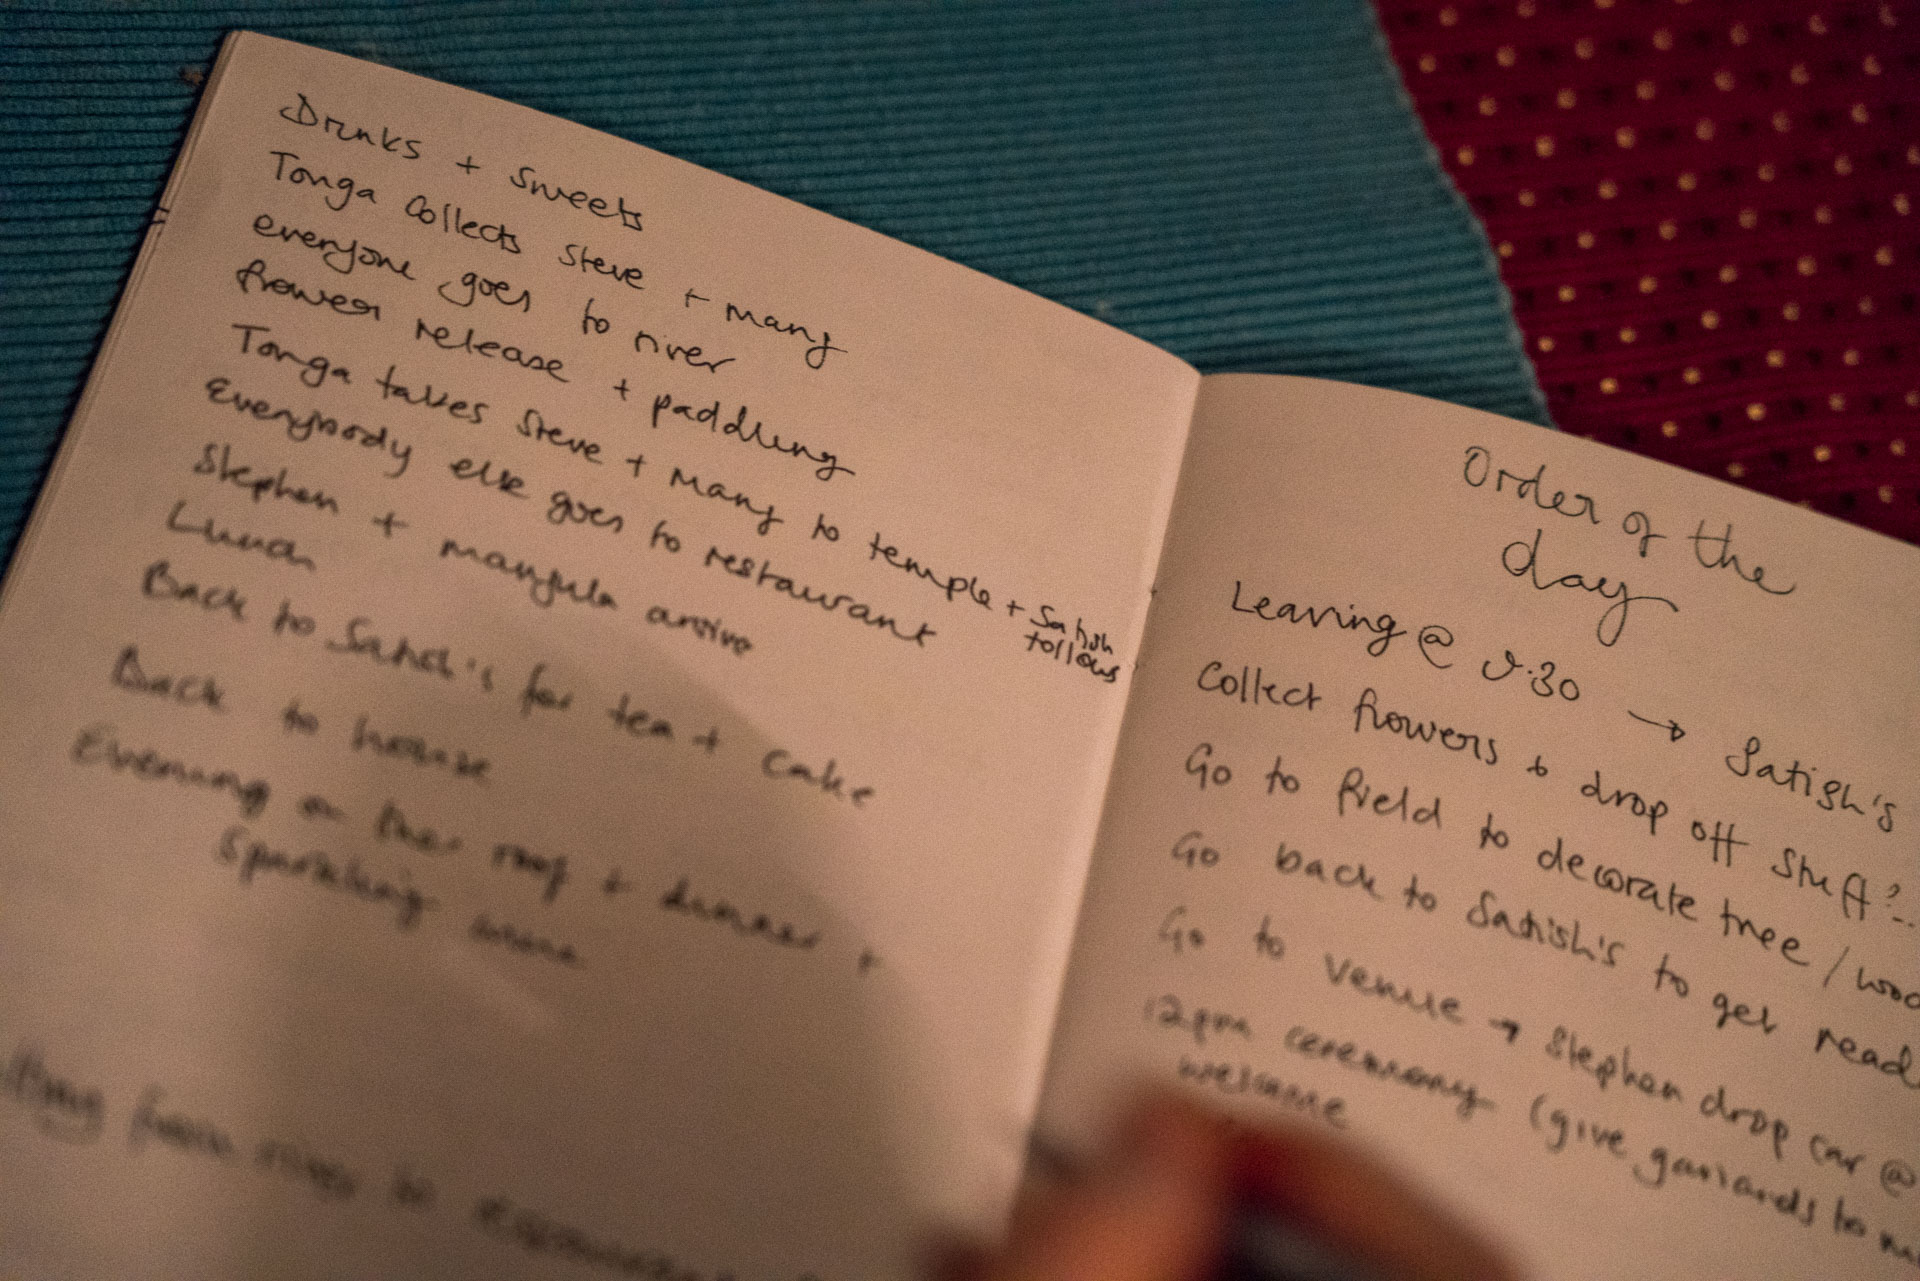 Drinks + Sweets
Tonga collects Steve + Many
everyone goes to river
flower release + paddling
Tonga takes Steve + Many to temple + Satish follows
Everybody else goes to restaurant
Stephen + manjula arrive
Lunch
Back to Satish's for tea + cake
Back to house
Evening on the roof + dinner +
Sparkling wine
from river to
Order of the
day
Leaving @ 9.30 → Satish's
Collect flowers + drop off stuff?..
Go to field to decorate tree /
Go back to Satish's to get
Go to venue → Stephen drop car @
12pm ceremony (give garlands to
welcome